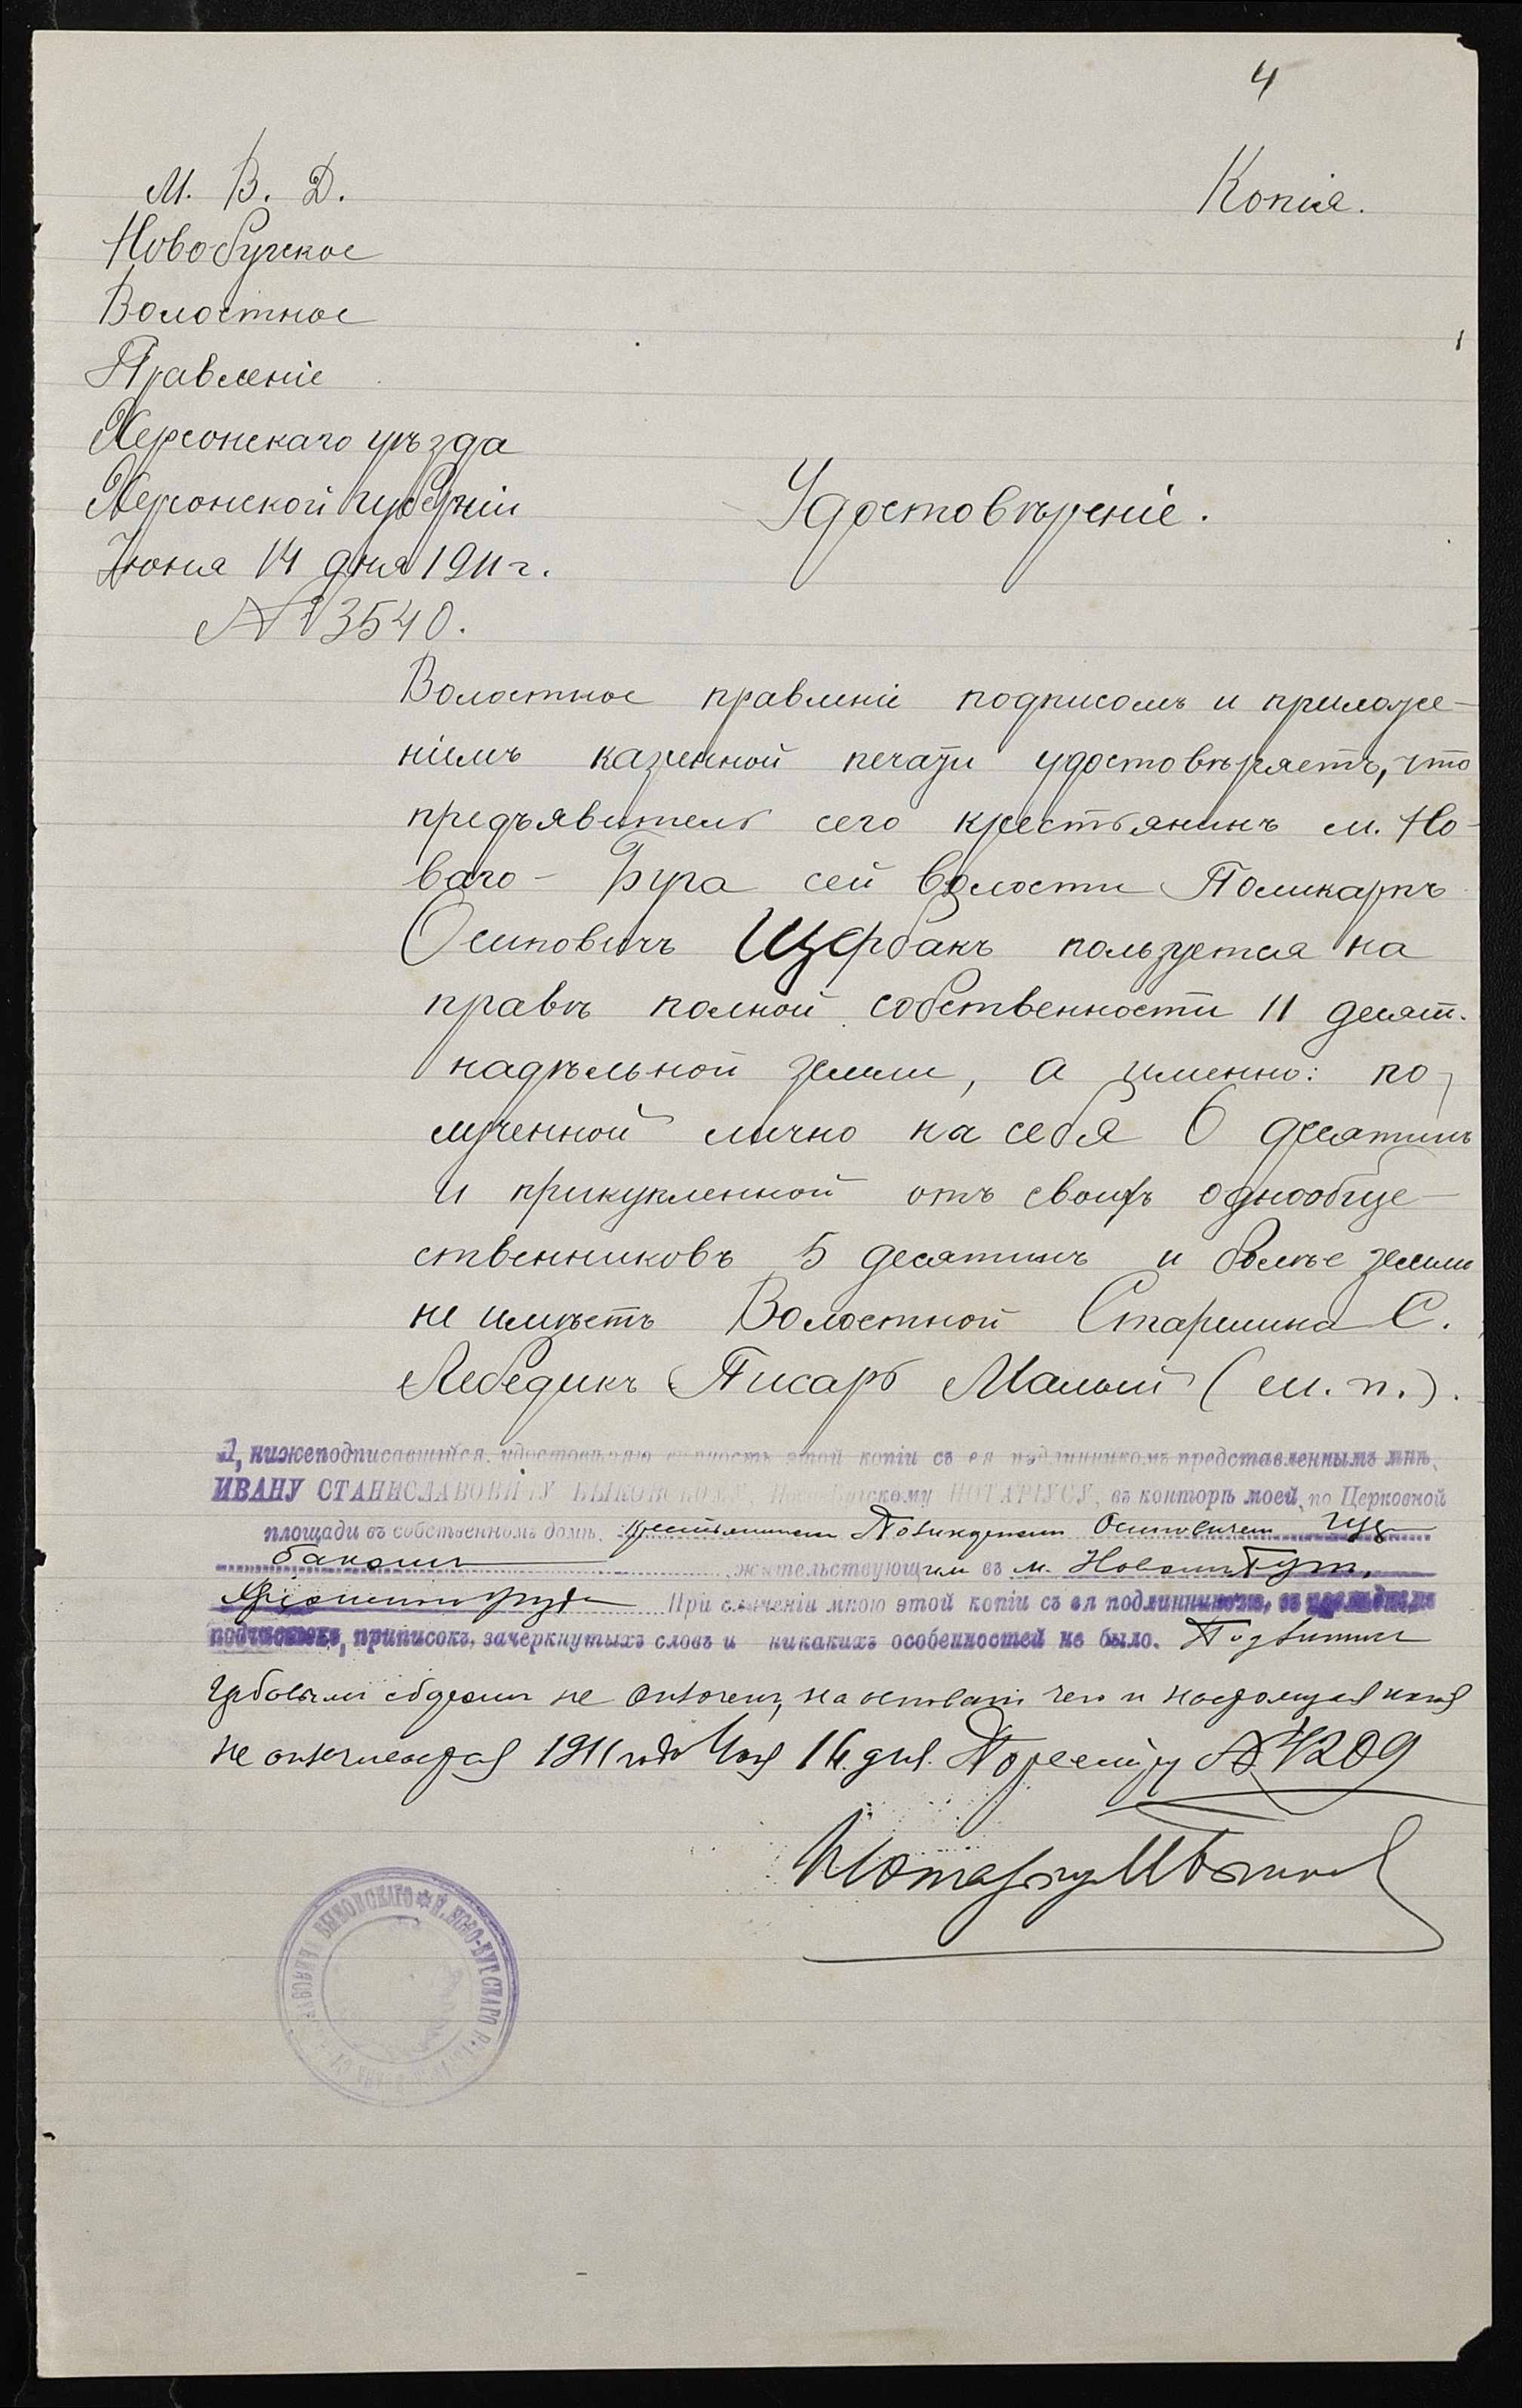 4
М. В. Д.
Копія.
Ново Бугское
Волостное
Правленіе
Херсонскаго уѣзда
Херсонской губерніи
Іюня 14 дня 1911 г.
№ 3540.
Удостовѣреніе.
Волостное правленіе подписомъ и приложе-
ніемъ казенной печати удостовѣряетъ, что
предъявитель сего крестьянинъ м. Но-
ваго - Буга сей волости Поликарпъ
Осиповичъ Щербакъ пользуется на
правѣ полной собственности 11 десят.
надѣльной земли, а именно: по-
лученной лично на себя 6 десятинъ
и прикупленной отъ своихъ однообще-
ственниковъ 5 десятинъ и болѣе земли
не имѣетъ Волостной Старшина С.
Лебедикъ Писарь Малый (м. п.).
Я, нижеподписавшійся, удостовѣряю вѣрность этой копіи съ ея подлинникомъ представленнымъ мнѣ,
ИВАНУ СТАНИСЛАВОВИЧУ БЫКОВСКОМУ, Ново-Бугскому НОТАРІУСУ, въ конторѣ моей, по Церковной
площади въ собственномъ домѣ, крестьяниномъ Поликарпомъ Осиповичемъ Щер
бакомъ жительствующимъ въ м. Новомъ Бугѣ,
Херсонскаго уѣзда При сличеніи мною этой копіи съ ея подлинникомъ, въ послѣднемъ
подчистокъ, приписокъ, зачеркнутыхъ словъ и никакихъ особенностей не было. Подлинникъ
гербовымъ сборомъ не оплоченъ, на основаніи чего и настоящая копія
не оплачивается 1911 года Іюня 16 дня. По реестру № 4209
Нотаріусъ И Быковскій
БЫКОВСКАГО НОВО-БУГСКАГО